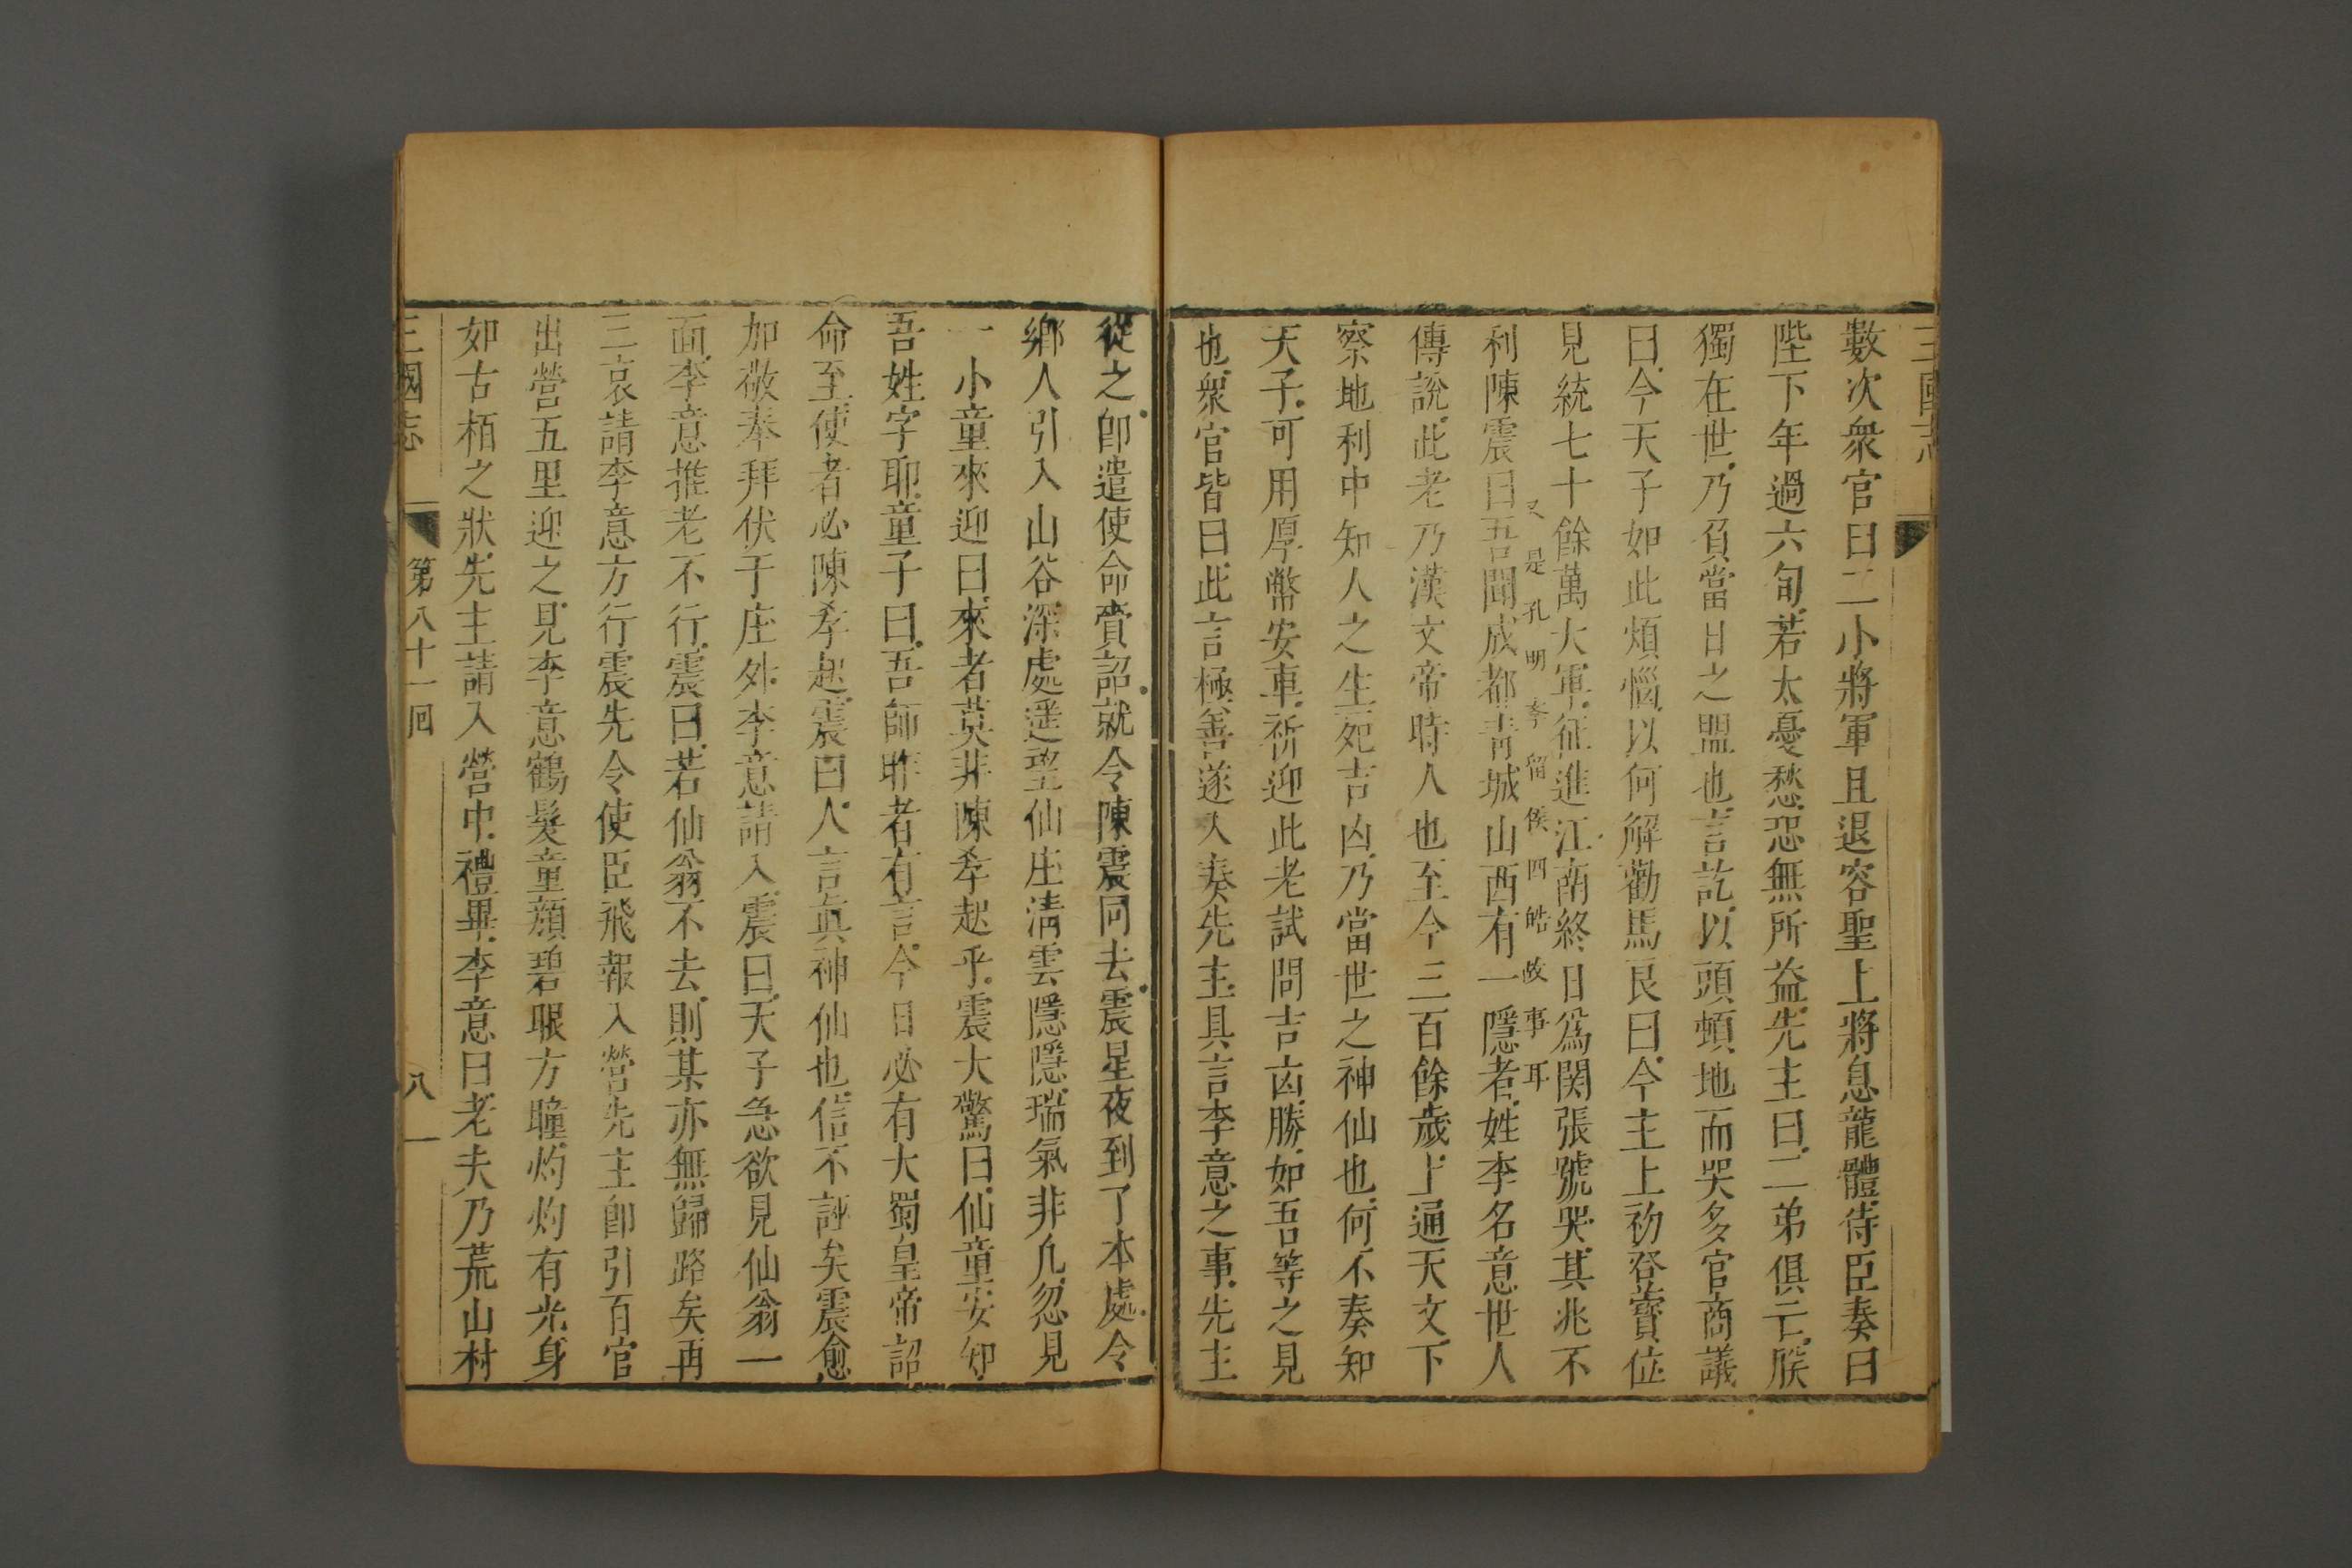 三國志
數次衆官曰二小將軍且退容聖上將息龍體侍臣奏曰
陛下年過六旬若太憂愁恐無所益先主曰二弟俱亡朕
獨在世乃負當日之盟也言訖以頭頓地而哭多官商議
曰今天子如此煩惱以何解勸馬良曰今主上初登寶位
見統七十餘萬大軍征進江南終日爲関張號哭其兆不
又是孔明李留侯四皓故事耳
利陳震曰吾聞成都青城山西有一隱者姓李名意世人
傳說此老乃漢文帝時人也至今三百餘歲上通天文下
察地利中知人之生死吉凶乃當世之神仙也何不奏知
天子可用厚幣安車祈迎此老試問吉凶勝如吾等之見
也衆官皆曰此言極善遂入奏先主具言李意之事先主
從之卽遣使命賫詔就令陳震同去震星夜到了本處令
鄉人引入山谷深處遥望仙庄清雲隱隱瑞氣非凡忽見
一小童來迎曰來者莫非陳孝起乎震大驚曰仙童安知
吾姓字耶童子曰吾師昨者有言今日必有大蜀皇帝詔
命至使者必陳孝起震曰人言眞神仙也信不誣矣震愈
加敬奉拜伏于庄外李意請入震曰天子急欲見仙翁一
面李意推老不行震曰若仙翁不去則某亦無歸路矣再
三哀請李意方行震先令使臣飛報入營先主卽引百官
出營五里迎之見李意鶴髮童顏碧眼方瞳灼灼有光身
如古栢之狀先主請入營中禮畢李意曰老夫乃荒山村
三國志 第八十一回 八